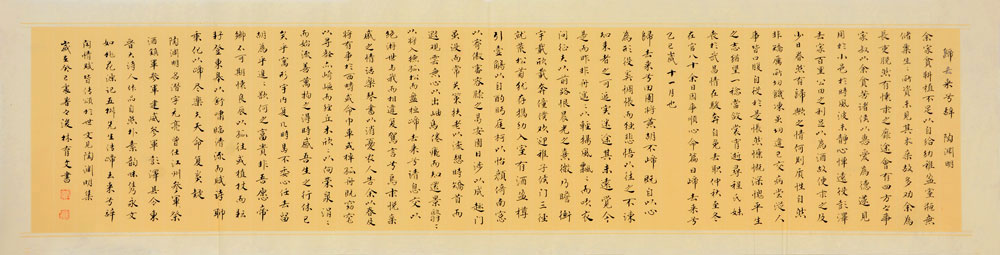 歸去來兮辭 陶淵明
余家貧耕植不足以自給幼稚盈室缾無
儲粟生生所資未見其术親故多勸余為
長吏脫然有懷求之靡途會有四方之事
家叔以余貧苦諸侯以惠愛為德遂見
用於小邑於時風波未靜心憚遠役彭澤
去家百里公田之利足以為酒故便求之及
少日眷然有歸歟之情何則質性自然
非矯厲所得飢凍雖切違己交病嘗從人
事皆口腹自役於是悵然慷慨深愧平生
之志猶望一稔當斂裳宵逝尋程氏妹
喪於武昌情在駿奔自免去職仲秋至冬
在官八十餘日因事順心命篇曰歸去來兮
乙巳歲十一月也
歸去來兮田園將蕪胡不歸既自以心
為形役奚惆悵而獨悲悟以往之不諫
知來者之可追實迷途其未遠覺今
是而昨非舟遙遙以輕颺風飄飄而吹衣
問征夫以前路恨晨光之熹微乃瞻衡
宇載欣載奔僮僕歡迎稚子候門三徑
就荒松菊猶存攜幼入室有酒盈樽
引壺觴以自酌眄庭柯以怡顏倚南窗
以寄傲審容膝之易安園日涉以成趣門
雖設而常關策扶老以流憩時矯首而
遐觀雲無心以出岫鳥倦飛而知還景翳翳
以將入撫孤松而盤桓歸去來兮請息交以
絕游世與我而相違復駕言兮焉求悅親
戚之情話樂琴書以消憂農人告余以春及
將有事于西疇或命巾車或棹孤舟既窈窕
以尋壑亦崎嶇而經丘木欣欣以向榮泉涓涓
而始流善萬物之得時感吾生之行休已
矣乎寓形宇內復幾時曷不委心任去留
胡為乎遑遑欲何之富貴非吾願帝
鄉不可期懷良辰以孤往或植杖而耘
耔登東皋以舒嘯臨清流而賦詩聊
乘化以歸盡樂夫天命復奚疑
陶淵明名潛字元亮曾任江州祭
酒鎮軍參軍建威參軍彭澤縣令東
晉大詩人作品自然朴素韵味雋永文
如桃花源記五柳先生傳歸去來兮辭
閑情賦皆傳頌於世文見陶淵明集
歲在癸巳林有文書